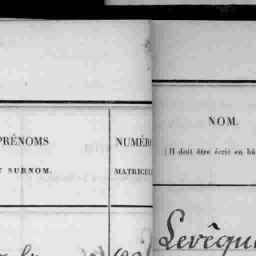 PRÉNOMS
SURNOM.
NUMÉR
MATRICU
NOM.
(Il doit être écrit en bâ
Levêqu